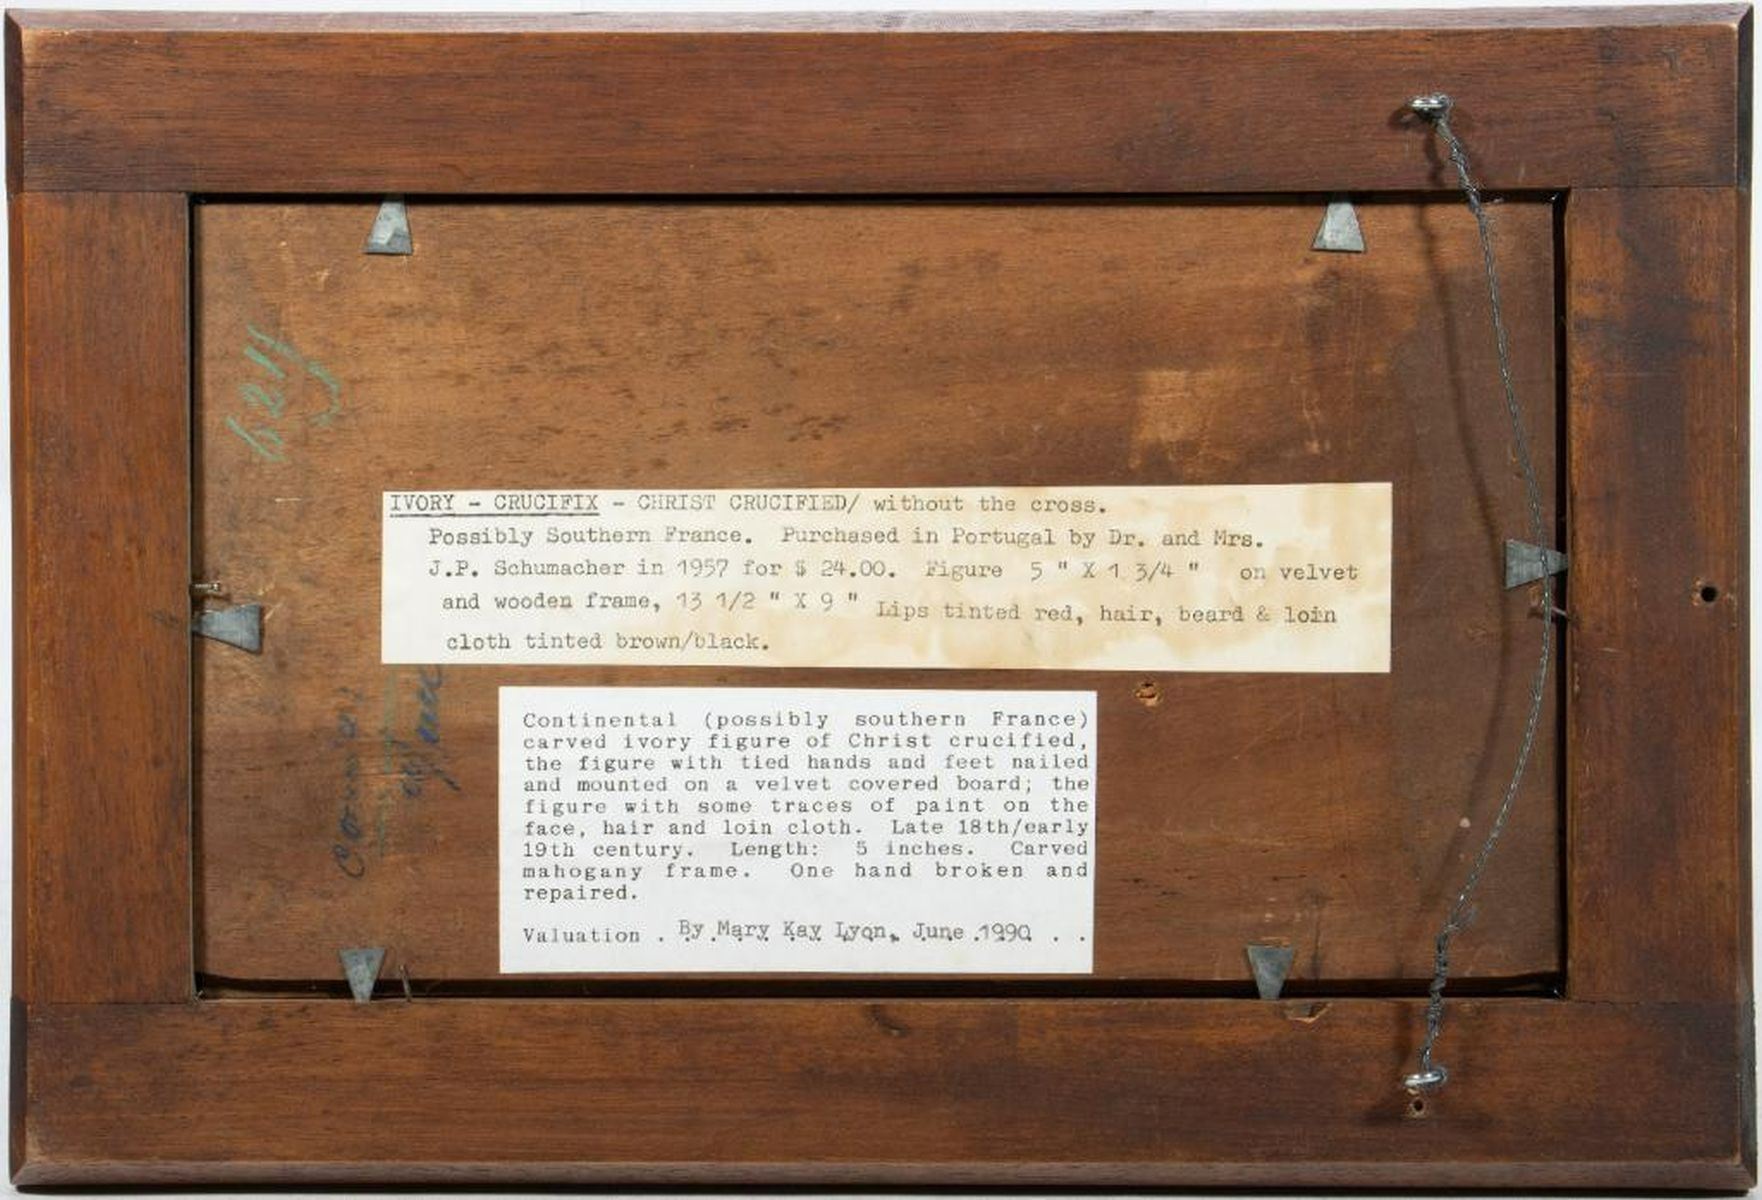 IVORY - CRUCIFIX - CHRIST CRUCIFIED/ without the cross.
Possibly Southern France. Purchased in Portugal by Dr. and Mrs.
J.P. Schumacher in 1957 for $ 24.00. Figure 5 " X 1 3/4 " on velvet
and wooden frame, 13 1/2 " X 9 " Lips tinted red, hair, beard & loin
cloth tinted brown/black.
Continental (possibly southern France)
carved ivory figure of Christ crucified,
the figure with tied hands and feet nailed
and mounted on a velvet covered board; the
figure with some traces of paint on the
face, hair and loin cloth. Late 18th/early
19th century. Length: 5 inches. Carved
mahogany frame. One hand broken and
repaired.
Valuation . By Mary Kay Lyon, June 1990 . .